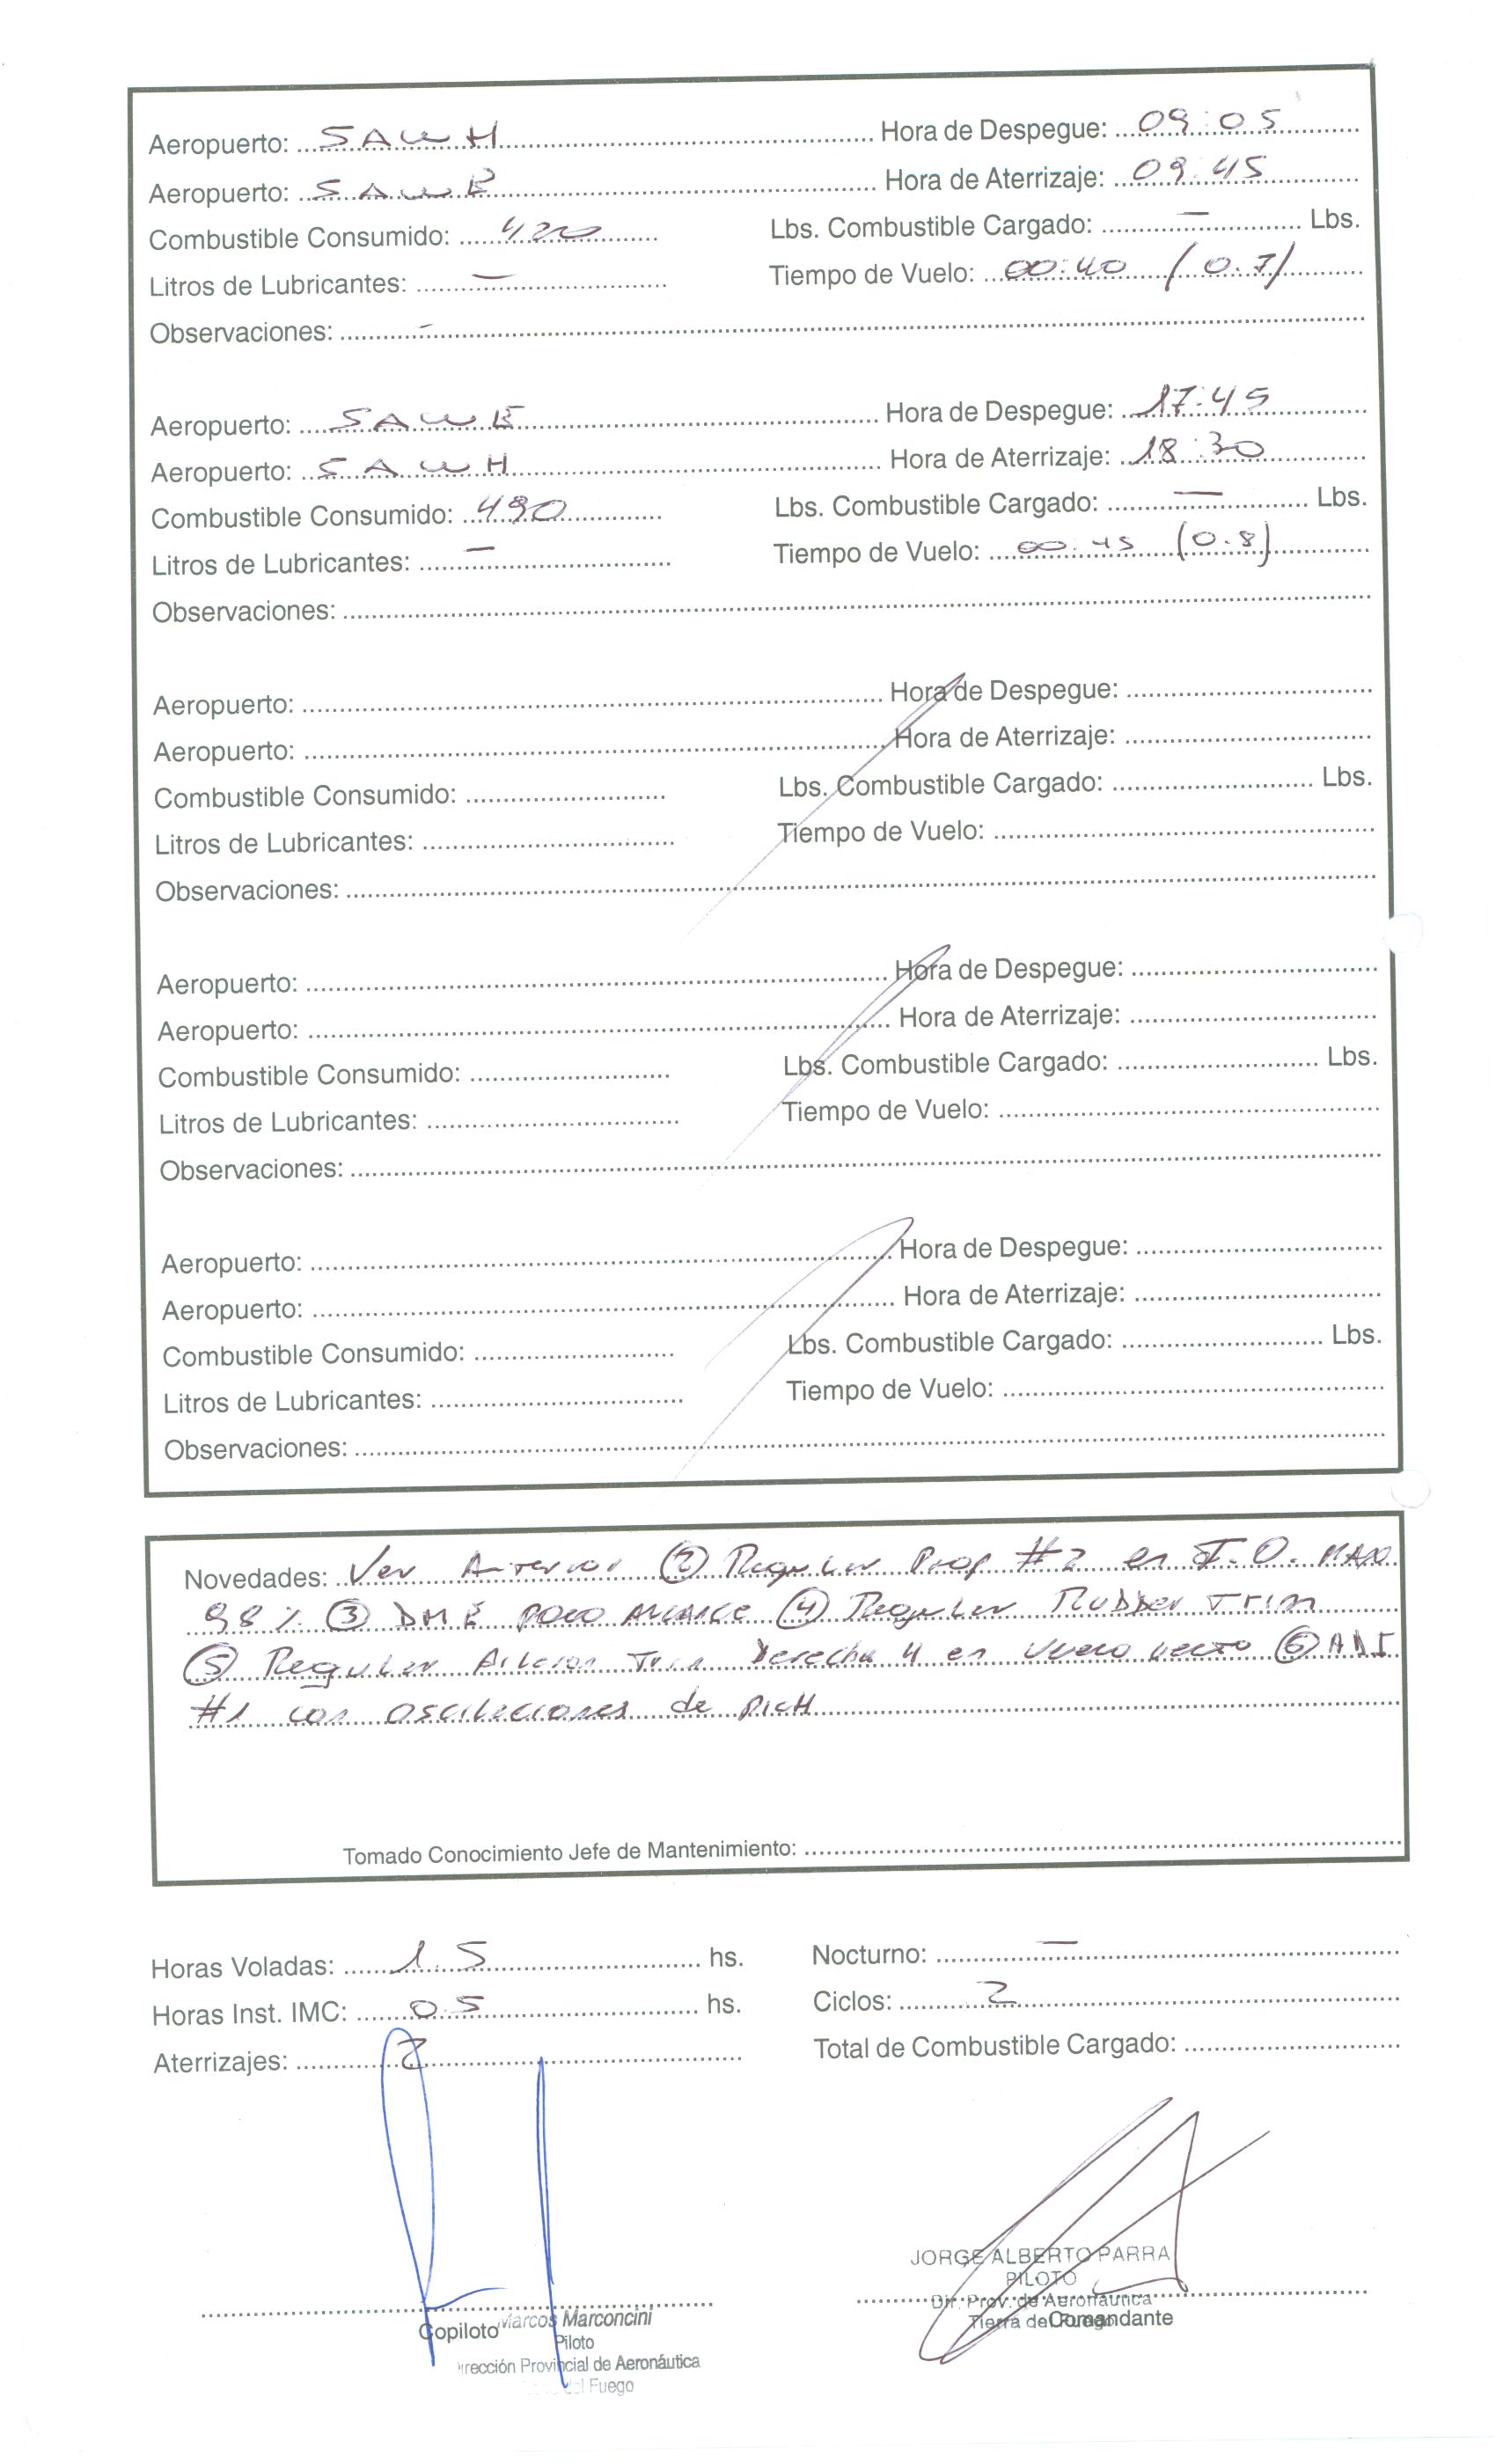 Aeropuerto: SAWH Hora de Despegue: 09:05
Aeropuerto: SAWE Hora de Aterrizaje: 09:45
Combustible Consumido: 420 Lbs. Combustible Cargado: — Lbs.
Litros de Lubricantes: — Tiempo de Vuelo: 00:40 (0.7)
Observaciones: -
Aeropuerto: SAWE Hora de Despegue: 17:45
Aeropuerto: SAWH Hora de Aterrizaje: 18:30
Combustible Consumido: 490 Lbs. Combustible Cargado: — Lbs.
Litros de Lubricantes: — Tiempo de Vuelo: 00:45 (0.8)
Observaciones:
Aeropuerto: Hora de Despegue:
Aeropuerto: Hora de Aterrizaje:
Combustible Consumido: Lbs. Combustible Cargado: Lbs.
Litros de Lubricantes: Tiempo de Vuelo:
Observaciones:
Aeropuerto: Hora de Despegue:
Aeropuerto: Hora de Aterrizaje:
Combustible Consumido: Lbs. Combustible Cargado: Lbs.
Litros de Lubricantes: Tiempo de Vuelo:
Observaciones:
Aeropuerto: Hora de Despegue:
Aeropuerto: Hora de Aterrizaje:
Combustible Consumido: Lbs. Combustible Cargado: Lbs.
Litros de Lubricantes: Tiempo de Vuelo:
Observaciones:
Novedades: Ver Anterior ② Regular Prop #2 en T.O. MAX
98% ③ DME poco alcance ④ Regular Rudder Trim
⑤ Regular Aileron Trim Derecha 4 en vuelo recto ⑥ ADI
#1 con oscilaciones de pich
Tomado Conocimiento Jefe de Mantenimiento:
Horas Voladas: 1.5 hs. Nocturno: —
Horas Inst. IMC: 0.5 hs. Ciclos: 2
Aterrizajes: 2 Total de Combustible Cargado:
JORGE ALBERTO PARRA
PILOTO
Dir. Prov. de Aeronáutica
Tierra de Comandante
Copiloto Marcos Marconcini
Piloto
irección Provincial de Aeronáutica
del Fuego